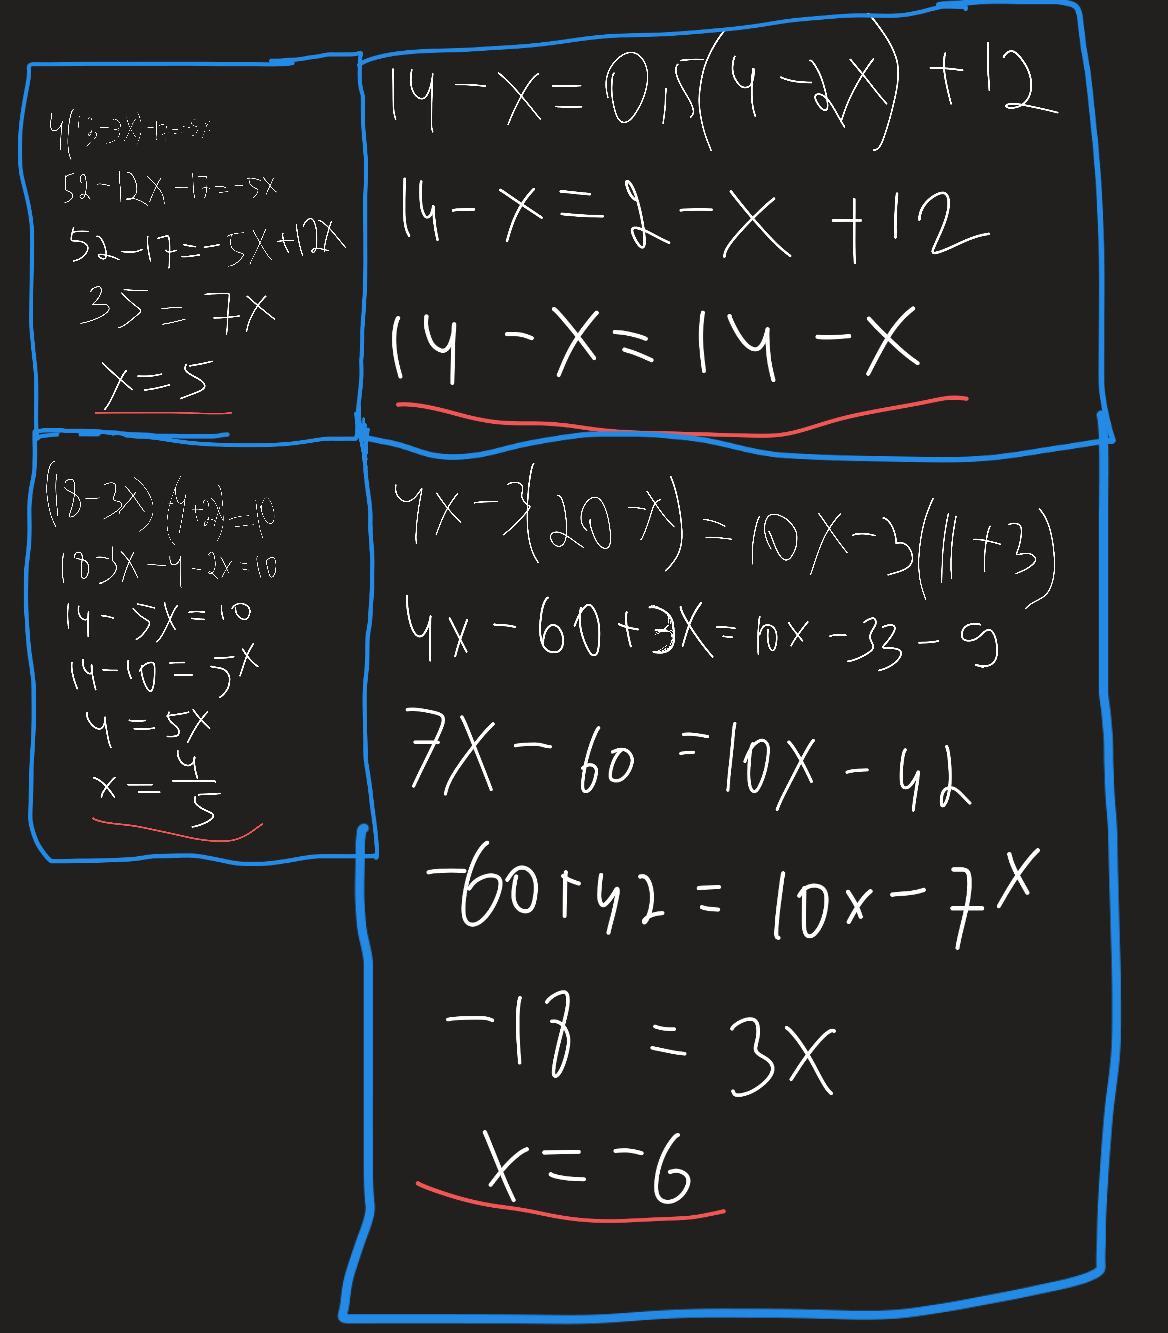 4(13-3x)-17=-5x
52-12x-17=-5x
52-17=-5x+12x
35=7x
x=5
14-x=0,5(4-2x)+12
14-x=2-x+12
14-x=14-x
(18-3x) (4+2x)=10
18-3x-4-2x=10
14-5x=10
14-10=5x
4=5x
x=4/5
4x-3(20-x)=10x-3(11+3)
4x-60+3x=10x-33-9
7x-60=10x-42
-60+42=10x-7x
-18=3x
x=-6